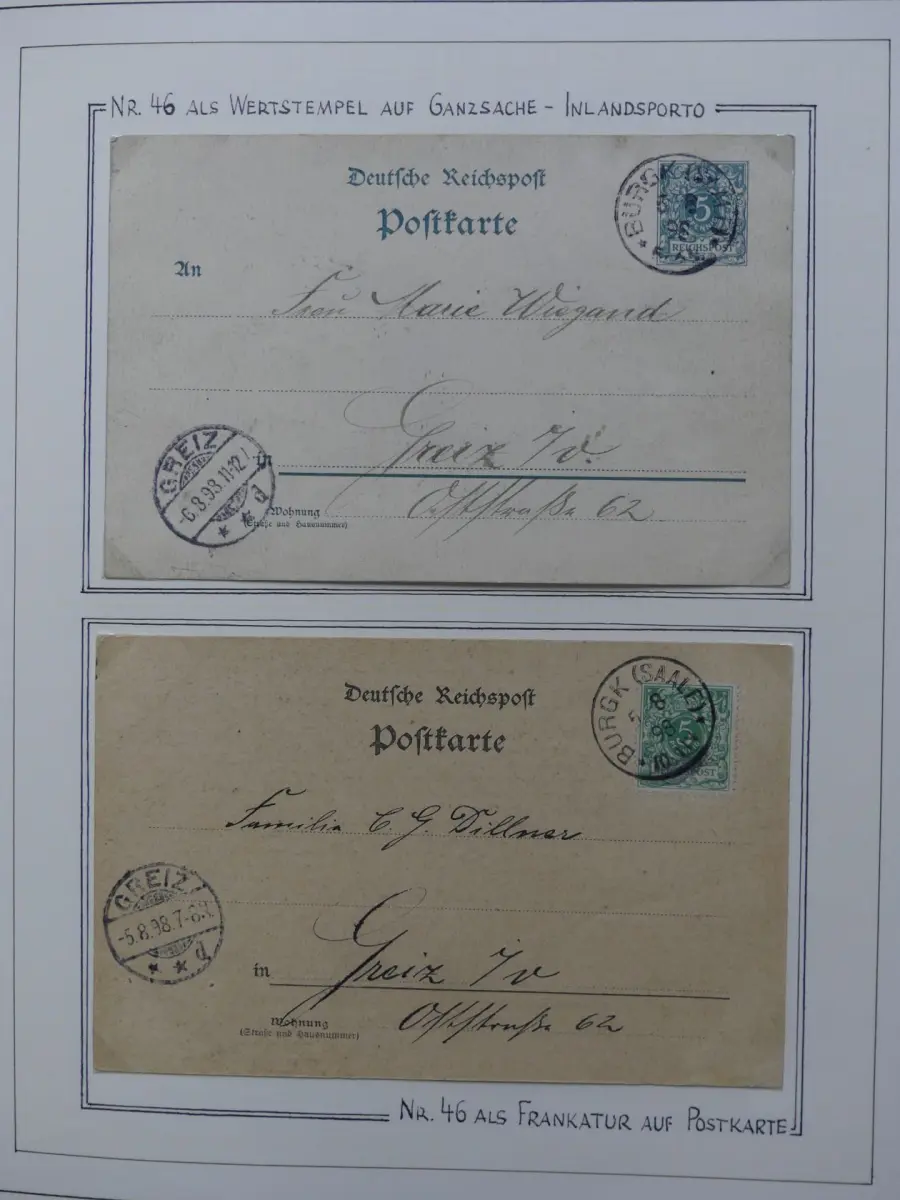 NR. 46 ALS WERTSTEMPEL AUF GANZSACHE - INLANDSPORTO
Deutsche Reichspost
Postkarte
BURGK
5
98
REICHSPOST
An
Frau Marie Wiegand
GREIZ
-6.8.98.11-12
d
in
Greiz i/v.
Wohnung
(Straße und Hausnummer)
Oststraße 62
Deutsche Reichspost
Postkarte
BURGK (SAALE)
8
98
5
POST
Familie C. G. Dillner
GREIZ
-5.8.98.7-8
d
in
Greiz i/v
Wohnung
(Straße und Hausnummer)
Oststraße 62
NR. 46 ALS FRANKATUR AUF POSTKARTE